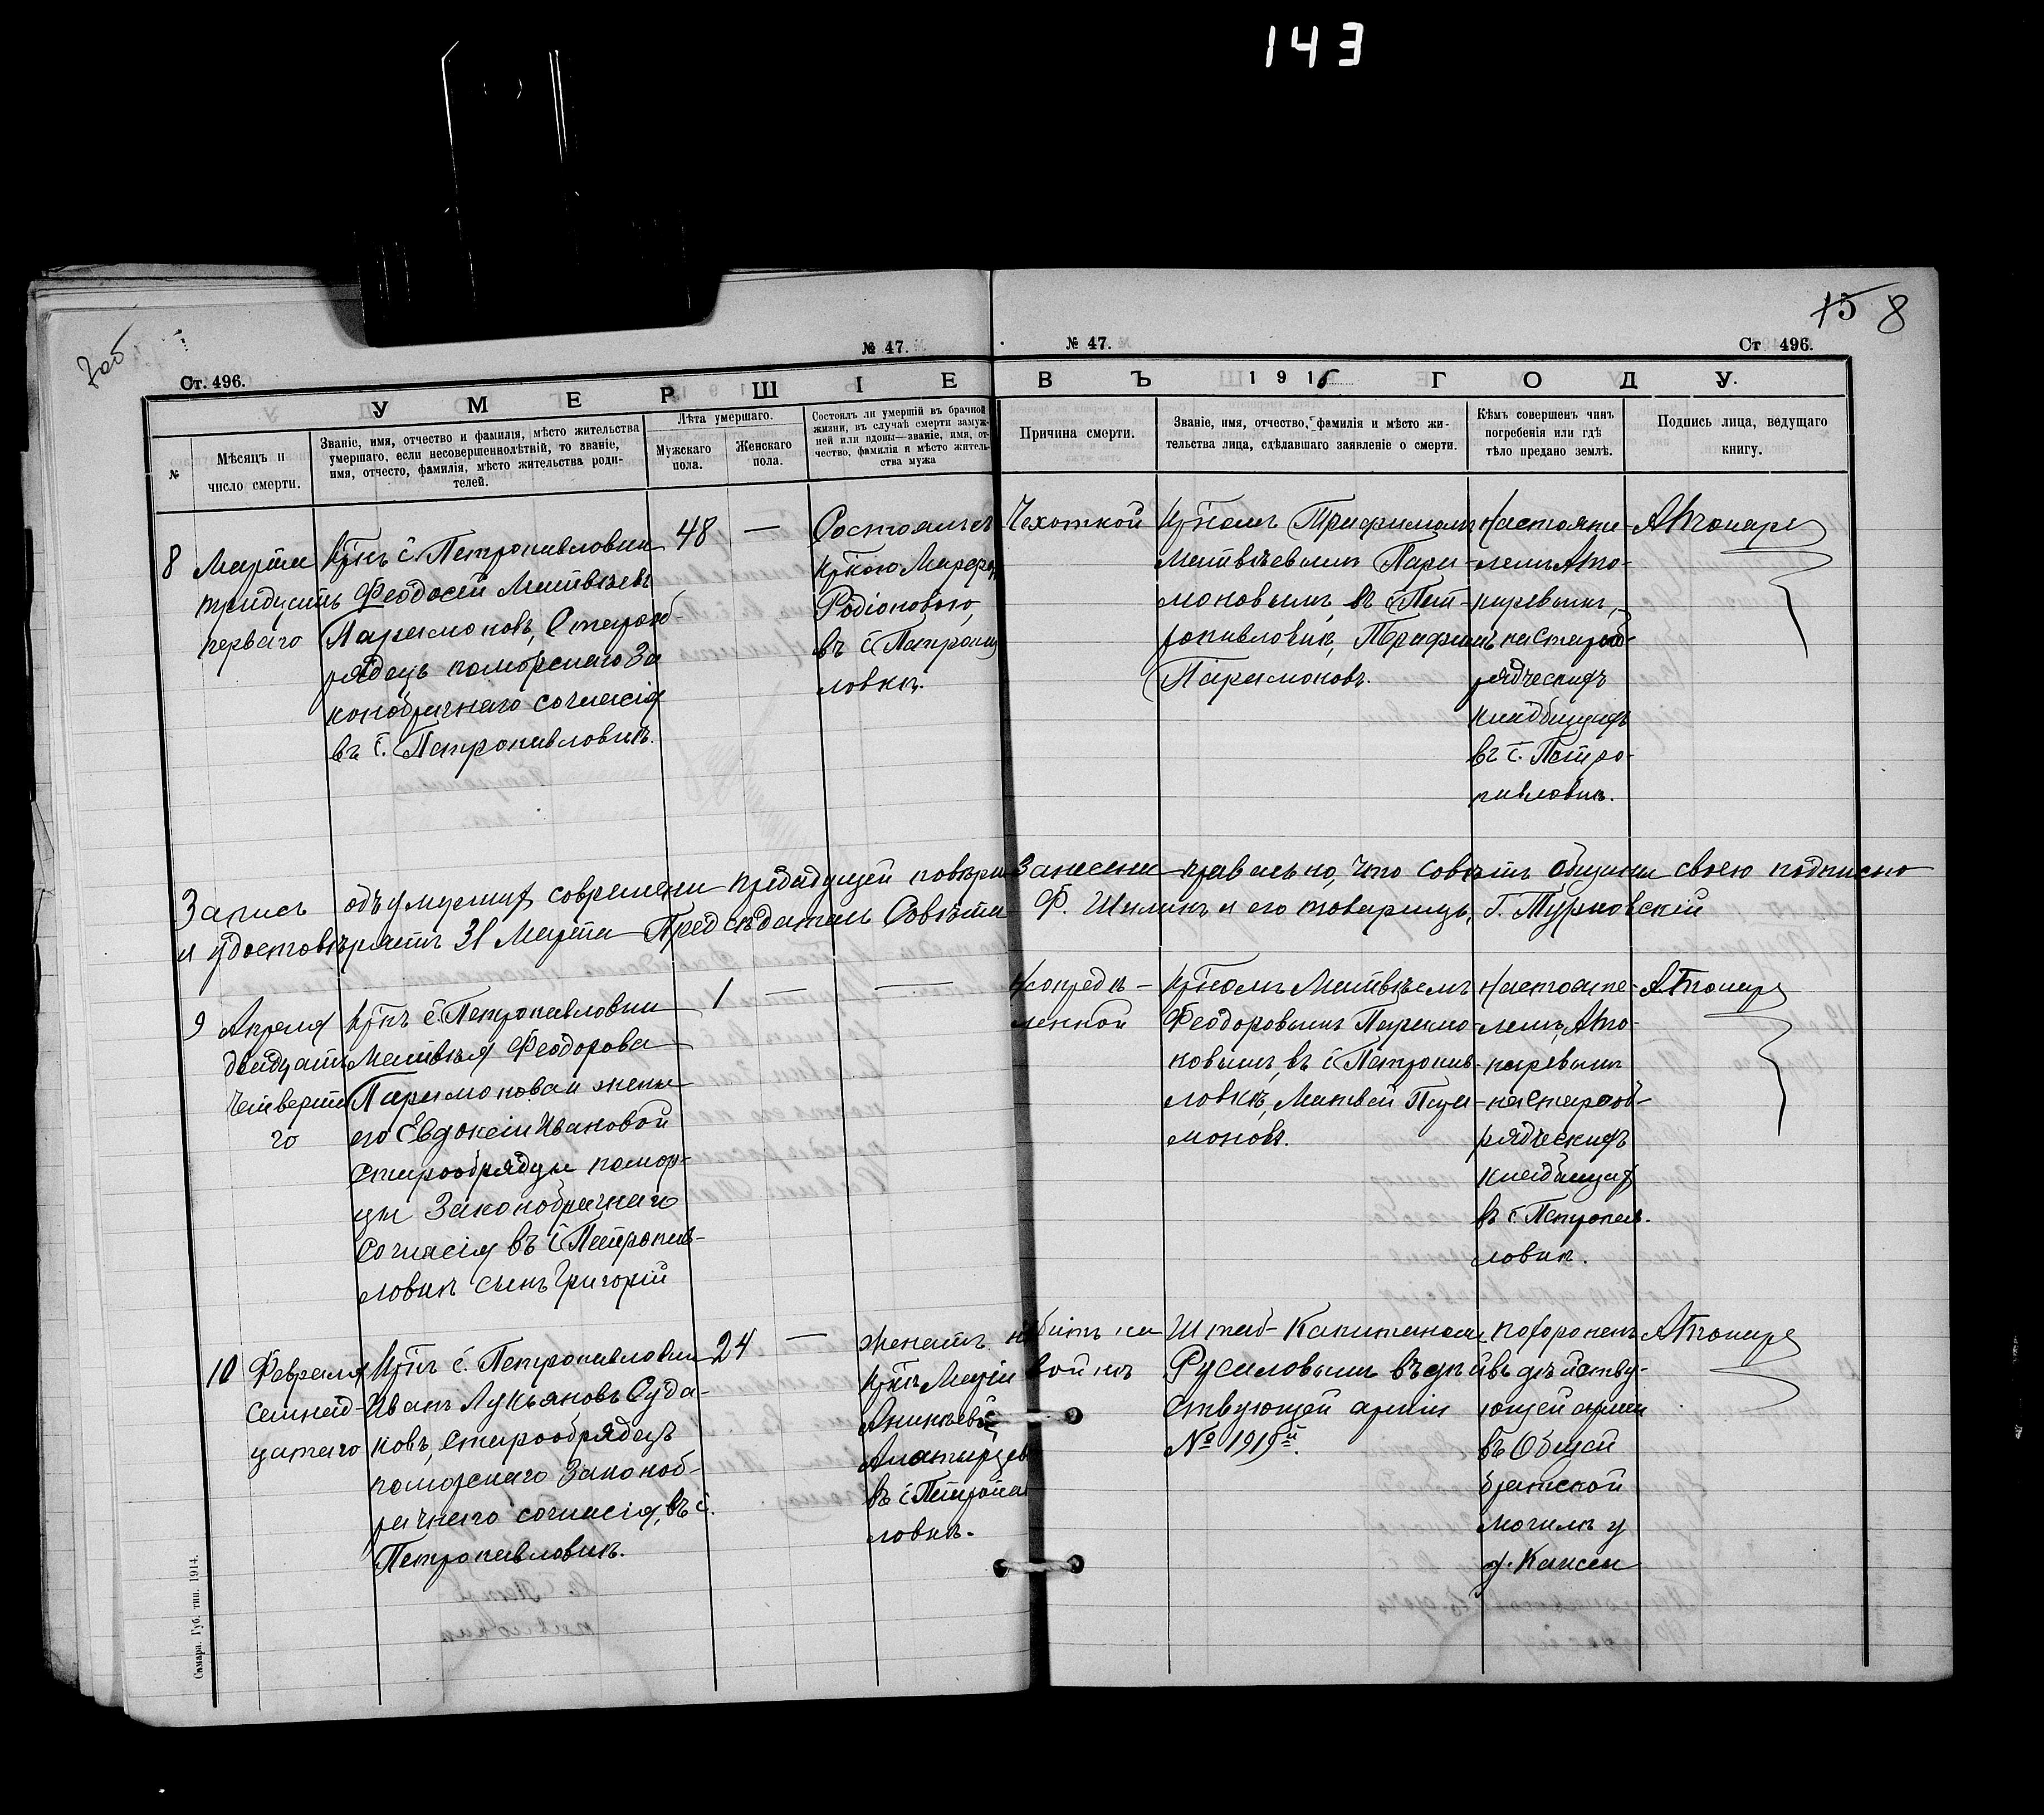 143
15 8
7об
Ст. 496.
№ 47.
№ 47.
Ст 496.
УМЕРШІЕ ВЪ 1916 ГОДУ.
№
Мѣсяцъ и
число смерти.
Званіе, имя, отчество и фамилія, мѣсто жительства
умершаго, если несовершеннолѣтній, то званіе,
имя, отчесто, фамилія, мѣсто жительства роди-
телей.
Лѣта умершаго.
Мужскаго
пола.
Женскаго
пола.
Состоялъ ли умершій въ брачной
жизни, въ случаѣ смерти замуж-
ней или вдовы—званіе, имя, от-
чество, фамилія и мѣсто житель-
ства мужа
Причина смерти.
Званіе, имя, отчество, фамилія и мѣсто жи-
тельства лица, сдѣлавшаго заявленіе о смерти.
Кѣмъ совершенъ чинъ
погребенія или гдѣ
тѣло предано землѣ.
Подпись лица, ведущаго
книгу.
8
Марта
тридцать
перваго
Крнъ с. Петропавловки
Феодосій Матвѣевъ
Парамоновъ, Старооб-
рядецъ поморскаго За
конобрачнаго согласія
въ с. Петропавловкѣ.
48
—
Состоялъ съ
Родіоновою,
въ с Петропав
ловкѣ.
Чехоткой
Крномъ Трифиломъ
Матвѣевымъ Пара-
моновымъ въ с Пет-
ропавловкѣ,
Парамоновъ.
Настояте-
лемъ Ато-
наревымъ,
на Старооб-
рядческихъ
кладбищахъ
въ с. Петро-
павловкѣ.
Запись объ умершихъ современи предыдущей повѣрки Занесена правильно, что совѣтъ общины своею подписью
и удостовѣряетъ 31 Марта Предсѣдатель Совѣта Ф. Шилинъ и его товарищъ, Г. Турновскій
9
Апреля
двадцать
четверта
го
Крнъ с. Петропавловки
Матвѣя Феодорова
Парамонова и жены
его Евдокіи Ивановой
Старообрядцы помор-
цы Законобрачнаго
Согласія въ с Петропав-
ловкѣ сынъ Григорій
1
—
—
Неопредѣ-
ленной
Крномъ Матвѣемъ
Феодоровымъ Парамо-
новымъ, въ с Петропав-
ловкѣ, Матвей Пара-
моновъ.
Настояте-
лемъ Ато-
наревымъ
на Старооб-
рядческихъ
кладбищахъ
въ с. Петропав-
ловкѣ.
10
Февраля
семнад-
цатаго
Крнъ с. Петропавловки
Иванъ Лукьяновъ Суда-
ковъ, старообрядецъ
поморскаго Законоб-
рачнаго согласія, въ с.
Петропавловкѣ.
24
—
Женатъ на
Крнкѣ Маріи
Аникѣевой
въ с Петропав
ловкѣ.
убитъ на
войнѣ
Штаб-Капитаномъ
Русиловымъ въ дѣй
ствующей арміи
№ 1919й.
похороненъ
въ дѣйству-
ющей арміи
въ Общей
братской
могилѣ у
д. Кансы
Самара. Губ. тип. 1914.